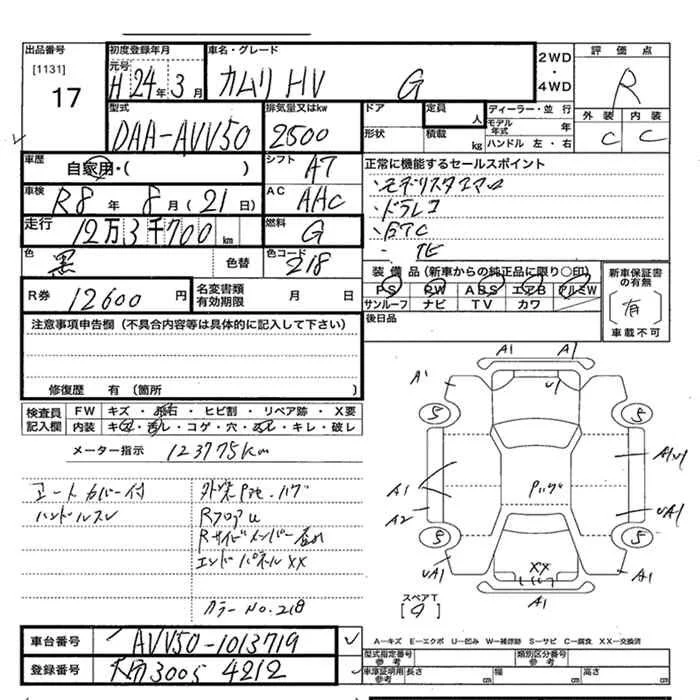 出品番号 初度登録年月 車名・グレード 2WD・4WD 評価点
[1131] 元号
17 H24年3月 カムリ HV G R
型式 排気量又はkw ドア 定員 人 ディーラー・並行 外装 内装
モデル年式 年
DAA-AVV50 2500 形状 積載 kg ハンドル 左・右 C C
車歴 自家用・( ) シフト A7 正常に機能するセールスポイント
車検 R8年 8月(21日) AC AAC ・モデリスタエアロ
・ドラレコ
走行 12万3千700km 燃料 G ・ETC
色 黒 色替 色コード 218 ・TE
装備品(新車からの純正品に限り〇印) 新車保証書の有無
R券 12600円 名変書類有効期限 月 日 PS PW ABS エアB アルミW
サンルーフ ナビ TV カワ (有)
注意事項申告欄(不具合内容等は具体的に記入して下さい) 後日品 車載不可
修復歴 有(箇所 )
検査員記入欄 FW キズ・飛石・ヒビ割・リペア跡・X要
内装 キズ・汚レ・コゲ・穴・スレ・キレ・破レ
メーター指示 123775km
コートカバー付 外装Pte.ハゲ
ハンドルスレ RフロアU
Rサイドメンバー
エンドパネルXX
カラーNo.218
A1 A1
A1 U1
S S
A1 A2 Pハゲ AU1 UA1
S S
UA1 XX A1
A1
スペアT
車台番号 AVV50-1013719
A―キズ E―エクボ U―凹み W―補修跡 S―サビ C―腐食 XX―交換済
型式指定番号 参考 類別区分番号 参考
登録番号 大分3005 4212
車庫証明用 参考 長さ cm 幅 cm 高さ cm